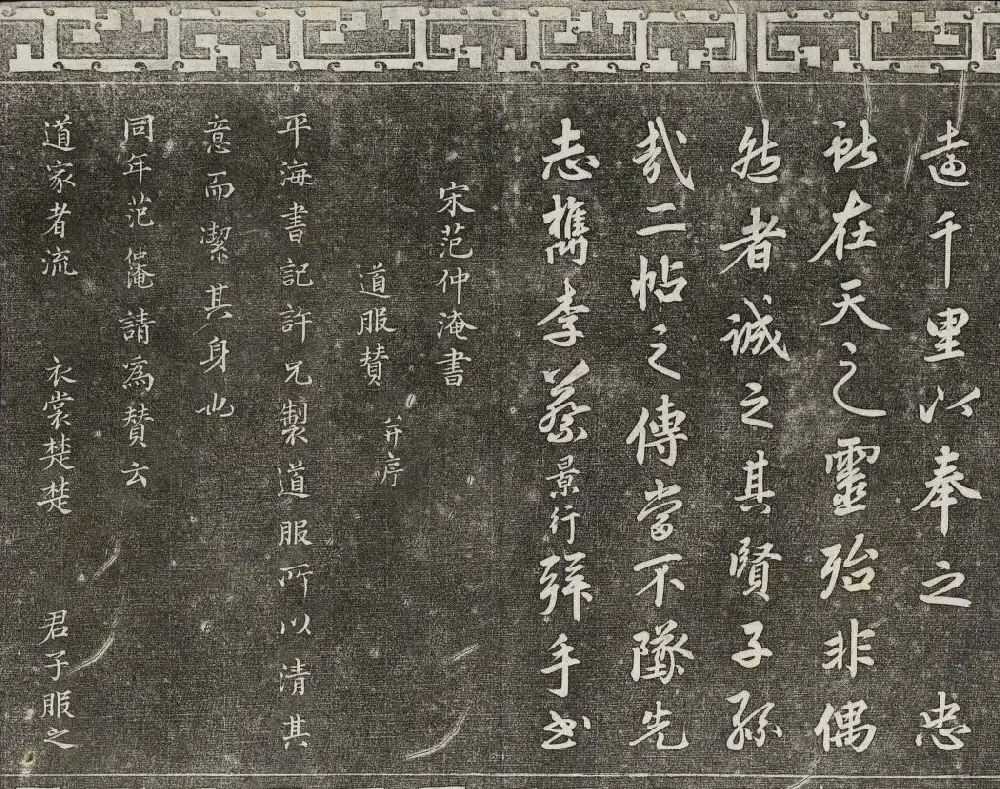 遠千里以奉之 忠
獻在天之靈殆非偶
然者誠之其賢子孫
哉二帖之傳當不墜先
志檇李蔡景行拜手書
宋范仲淹書
道服贊 并序
平海書記許兄製道服所以清其
意而潔其身也
同年范仲淹請爲贊云
道家者流 衣裳楚楚 君子服之